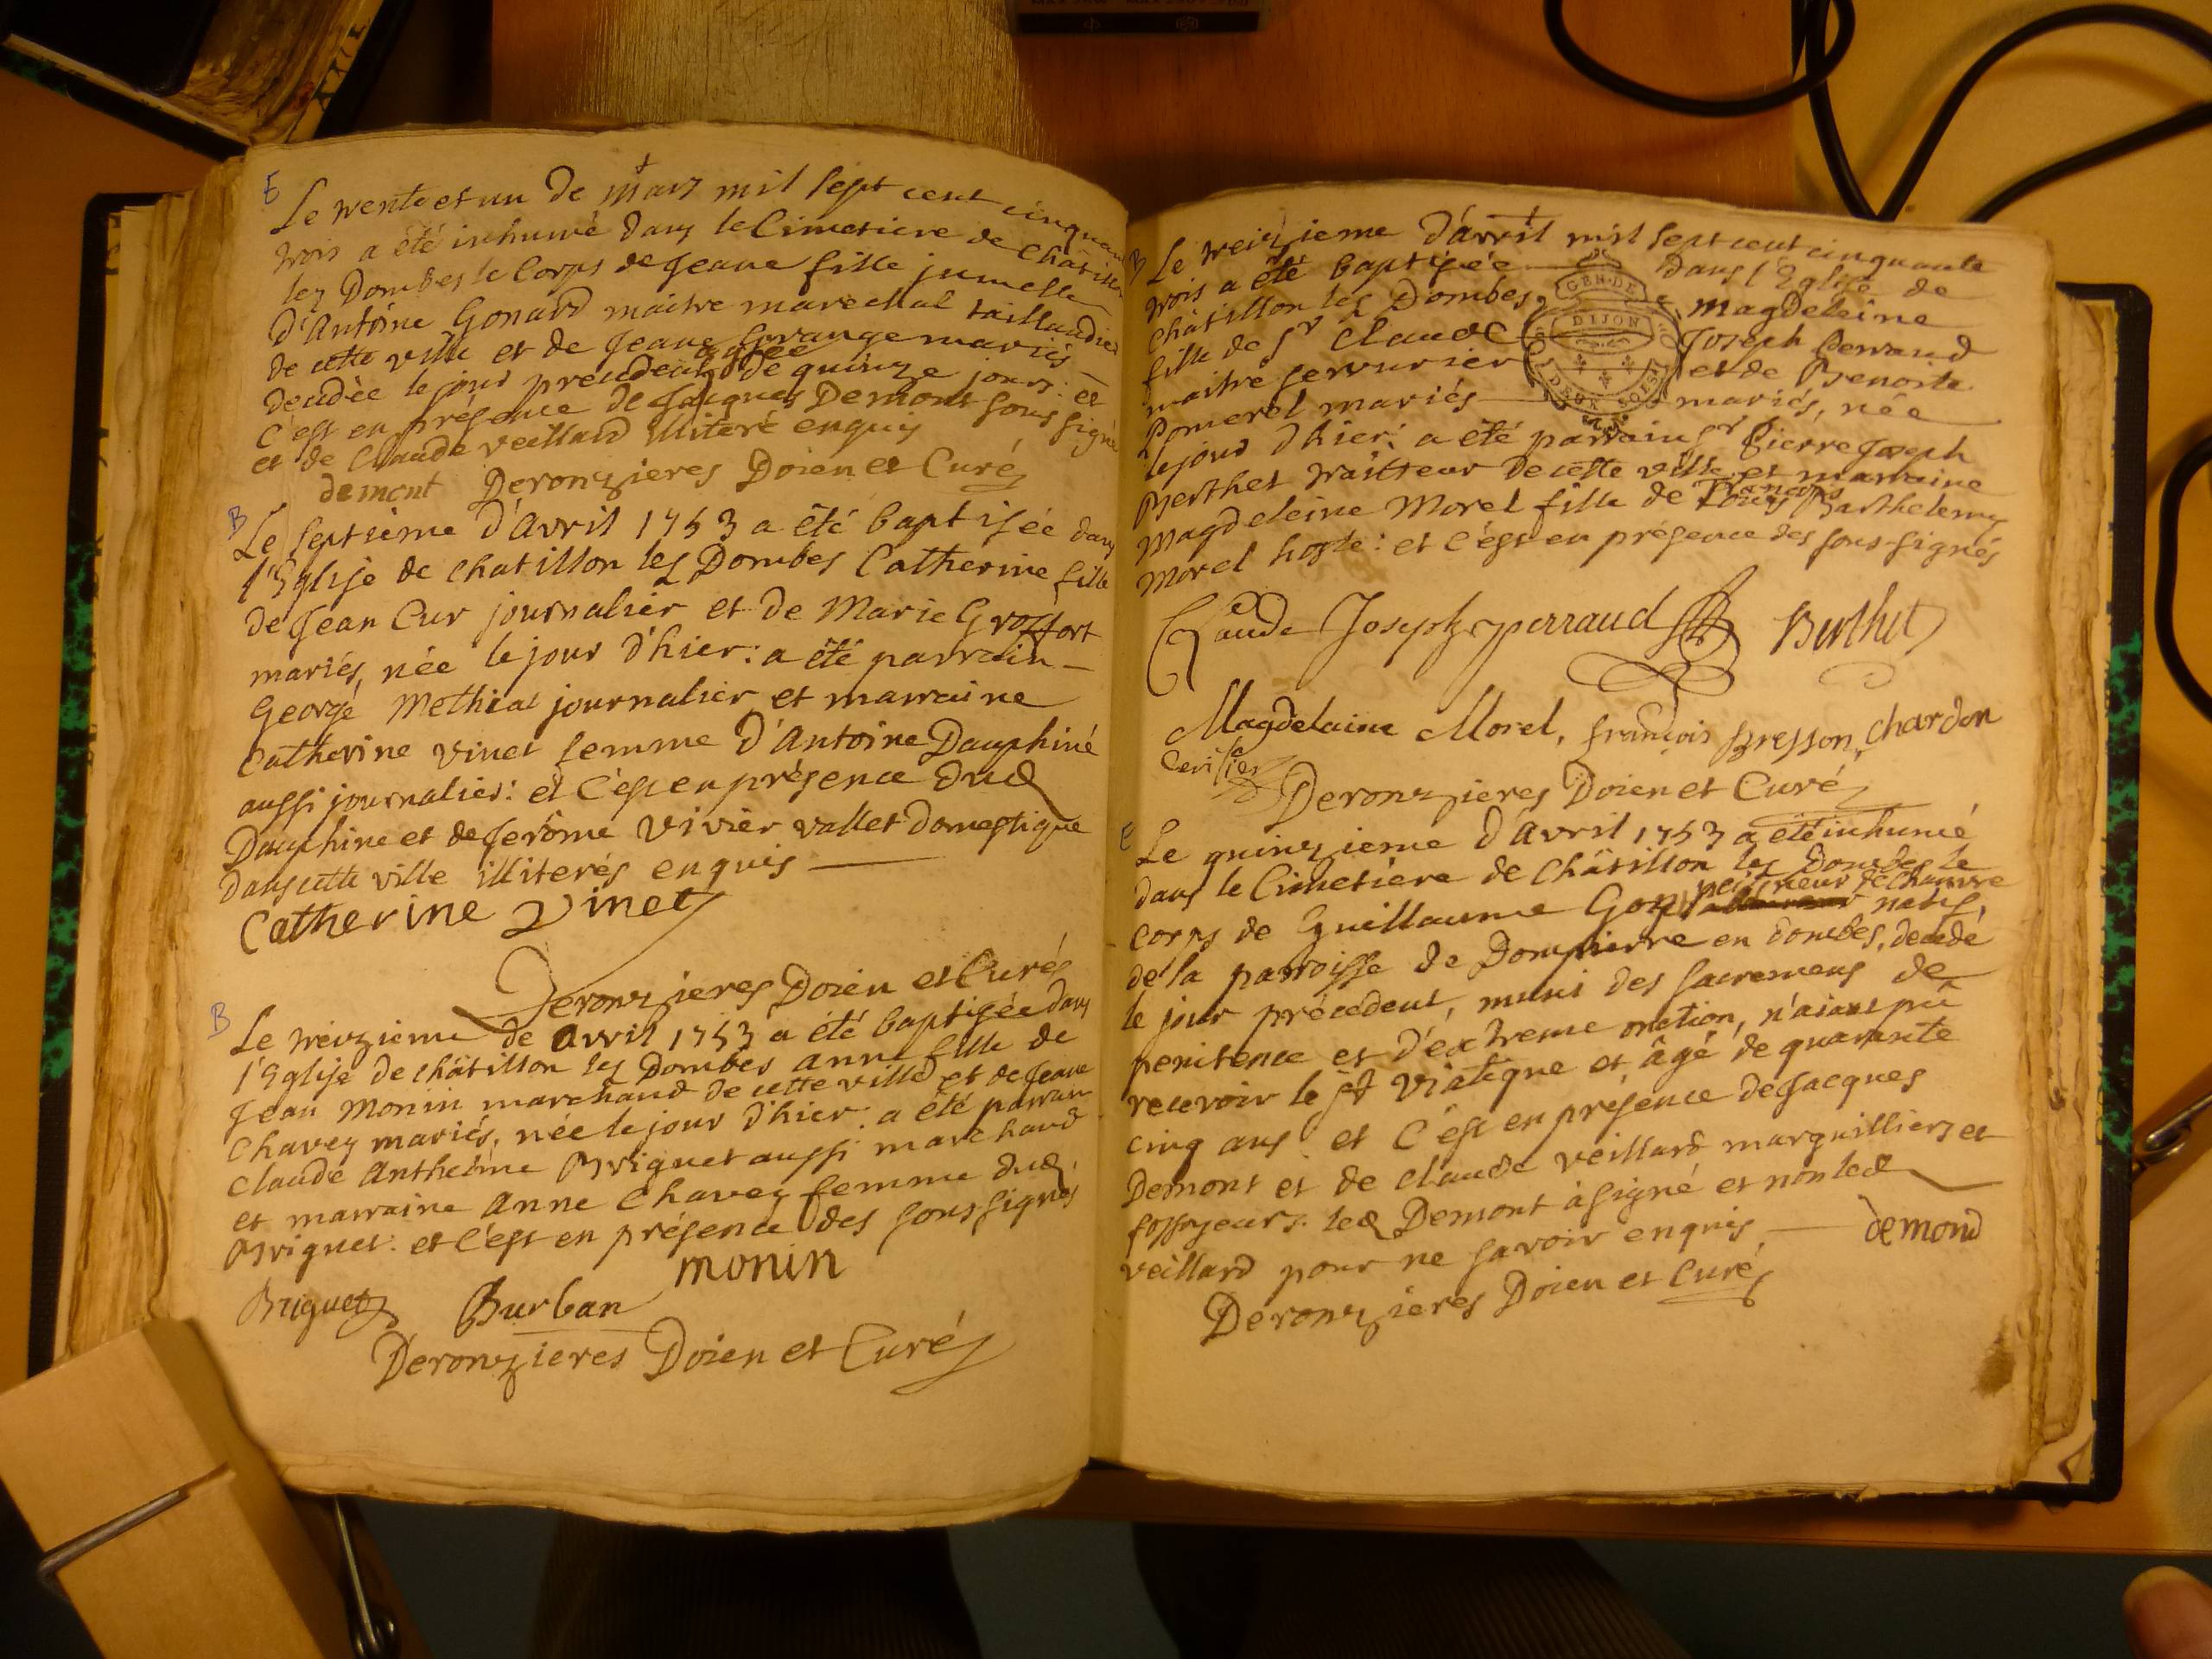 E
Le trente et un de Mars mil sept cent cinquante
trois a été inhumé dans le Cimetiere de Châtillon
les Dombes le Corps de Jeane fille jumelle
d'Antoine Gonard maitre marechal taillandier
de cette ville et de Jeane mariés
agée
decedée le jour precedent de quinze jours: et
c'est en présence de Jacques Demont sous signé
et de Claude veillard illiteré enquis
demont Deronzieres Doien et Curé
B
Le Septieme d'Avril 1753 a été baptisée dans
l'Eglise de chatillon les Dombes Catherine fille
de Jean Cur journalier et de Marie Groffort
mariés, née le jour d'hier: a été parrain
George Methial journalier et marraine
Catherine vinet femme d'Antoine Dauphiné
aussi journalier: et c'est en présence dud
Dauphine et de Jerôme Vivier vallet domestique
dans cette ville illiterés enquis
Catherine Vinet
Deronzieres Doien et Curé
B
Le treizieme de avril 1753 a été baptisée dans
l'Eglise de châtillon les Dombes anne fille de
Jean Monin marchand de cette ville et de Jeane
Chavey mariés, née le jour d'hier: a été parrain
claude Anthelme Briguet aussi marchand
et marraine Anne Chavey femme dud
Briguet: et c'est en présence des sous signés
monin
Briguet Burban
Deronzieres Doien et Curé
B
Le treizieme d'avril mil sept cent cinquante
trois a été baptisée dans l'Eglise de
châtillon les Dombes Magdeleine
fille de Sr Claude Joseph Perraud
maitre serrurier et de Benoite
Pomerel mariés mariés, née
le jour d'hier: a été parrain Sr Pierre Joseph
Berthet traitteur de cette ville et marraine
Magdeleine Morel fille de Barthelemy
Morel hoste: et c'est en présence des sous-signés
GEN. DE
DIJON
Claude Joseph perraud Berthet
Magdelaine Morel, françois Bresson, chardon
Cerisier
Deronzieres Doien et Curé
E
Le quinzieme d'Avril 1753 a été inhumé
dans le Cimetiere de Châtillon les Dombes le
peigneur de chanvre
corps de Guillaume Gon natif
de la parroisse de Dompierre en Dombes, decedé
le jour précédent, muni des sacremens de
penitence et d'extreme onction, n'aiant pû
recevoir le St Viatique et âgé de quarante
cinq ans: et c'est en présence de Jacques
Demont et de claude veillard marguilliers et
fossoyeurs. led Demont à signé et non led
veillard pour ne savoir enquis demond
Deronzieres Doien et Curé